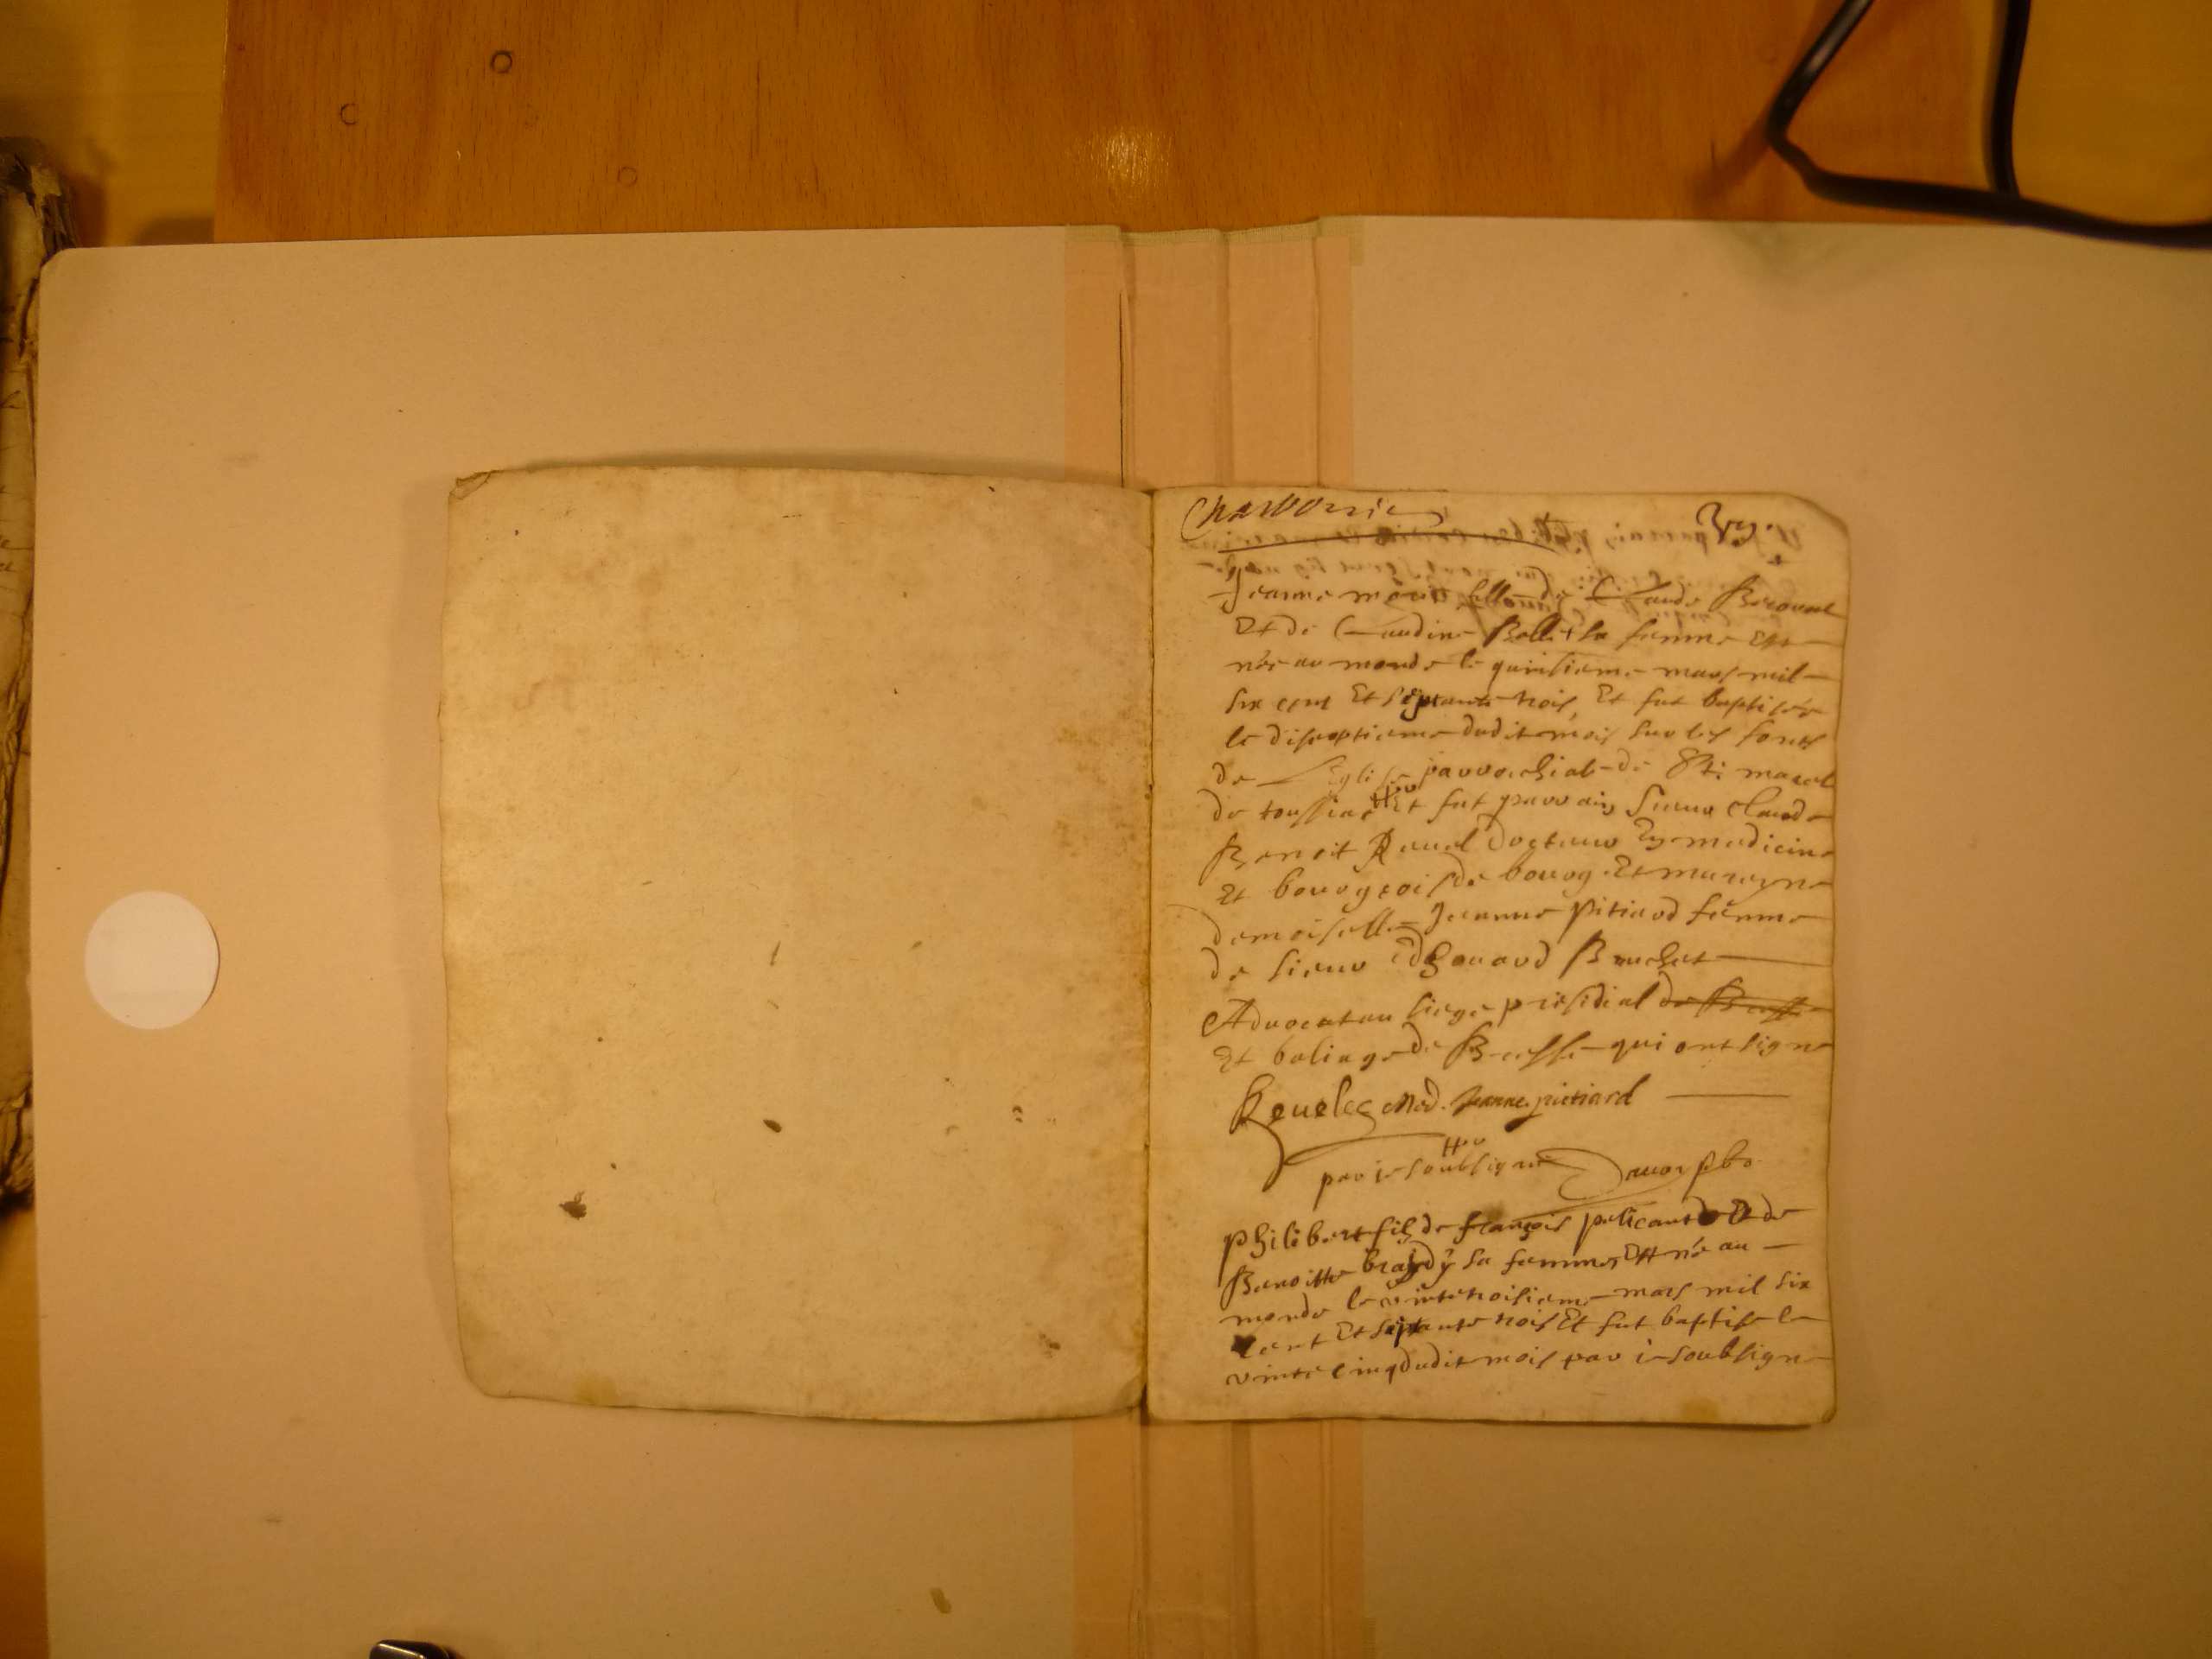 Charbonnie
Jeanne marie fille de Claude
Et de Claudine Bollet sa femme Est
née au monde le quinsieme mars mil
six cent Et septante trois, Et fut baptisée
le diseptieme dudit mois sur les fonts
de Eglise parrochiale de St: marcel
de toussiat Et fut parrain sieur Claude
Benoit Revel Docteur En medicine
Et bourgeois de bourg Et mareyne
demoiselle Jeanne Pitiard femme
de sieur Edhouard Bruchet
Advocat au siege presidial de Bresse
Et baliage de Bresse qui ont signe
Med. Jeanne pietiard
par je soubsigné pbr
Philibert filz de françois pelicand Et de
Benoitte sa femme, Est né au
monde le vintetroisieme mars mil six
cent Et septante trois Et fut baptise le
vinte cinq dudit mois par je soubsigne